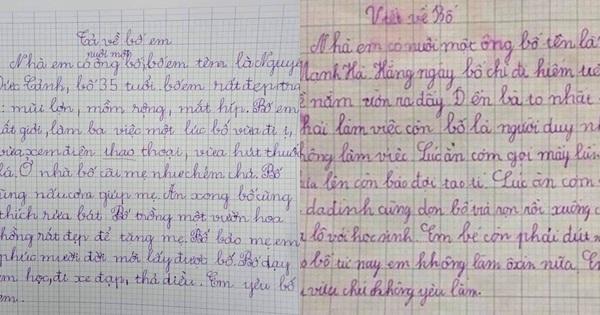 Tả về bố em
nuôi một
Nhà em có ông bố, bố em tên là Nguyễ
Đức Cảnh, bố 35 tuổi. bố em rất đẹp tra
: mũi lớn, mồm rộng, mắt híp. Bố em
ất giỏi, làm ba việc một lúc bố vừa đi ị,
vừa xem điện thao thoại, vừa hút thuố
lá, Ở nhà bố cãi mẹ như chém chả. Bố
cũng nấu cơm giúp mẹ. Ăn xong bố cũng
thích rửa bát. Bố trồng một vườn hoa
hồng rất đẹp để tăng mẹ. Bố bảo mẹ em
phúc mười đời mới lấy được bố. Bố dạy
em học, đi xe đạp, thả diều. Em yêu bố
em.
Viết về Bố
Nhà em có nuôi một ông bố tên là
Mạnh Hà. Hằng ngày bố chỉ đi kiếm tiề
về nằm ườn ra đấy. Đến bà to nhất
hải làm việc còn bố là người duy n
hông làm việc. Lúc ăn cơm gọi mấy lần
lên còn bảo đợi tao tí. Lúc ăn cơm
da đình cùng dọn bố và rọn rồi xuống c
lô với học sinh. Em bé còn phải dứt
bố từ nay em không làm ôxin nữa. E
vừa chứ không yêu lắm.